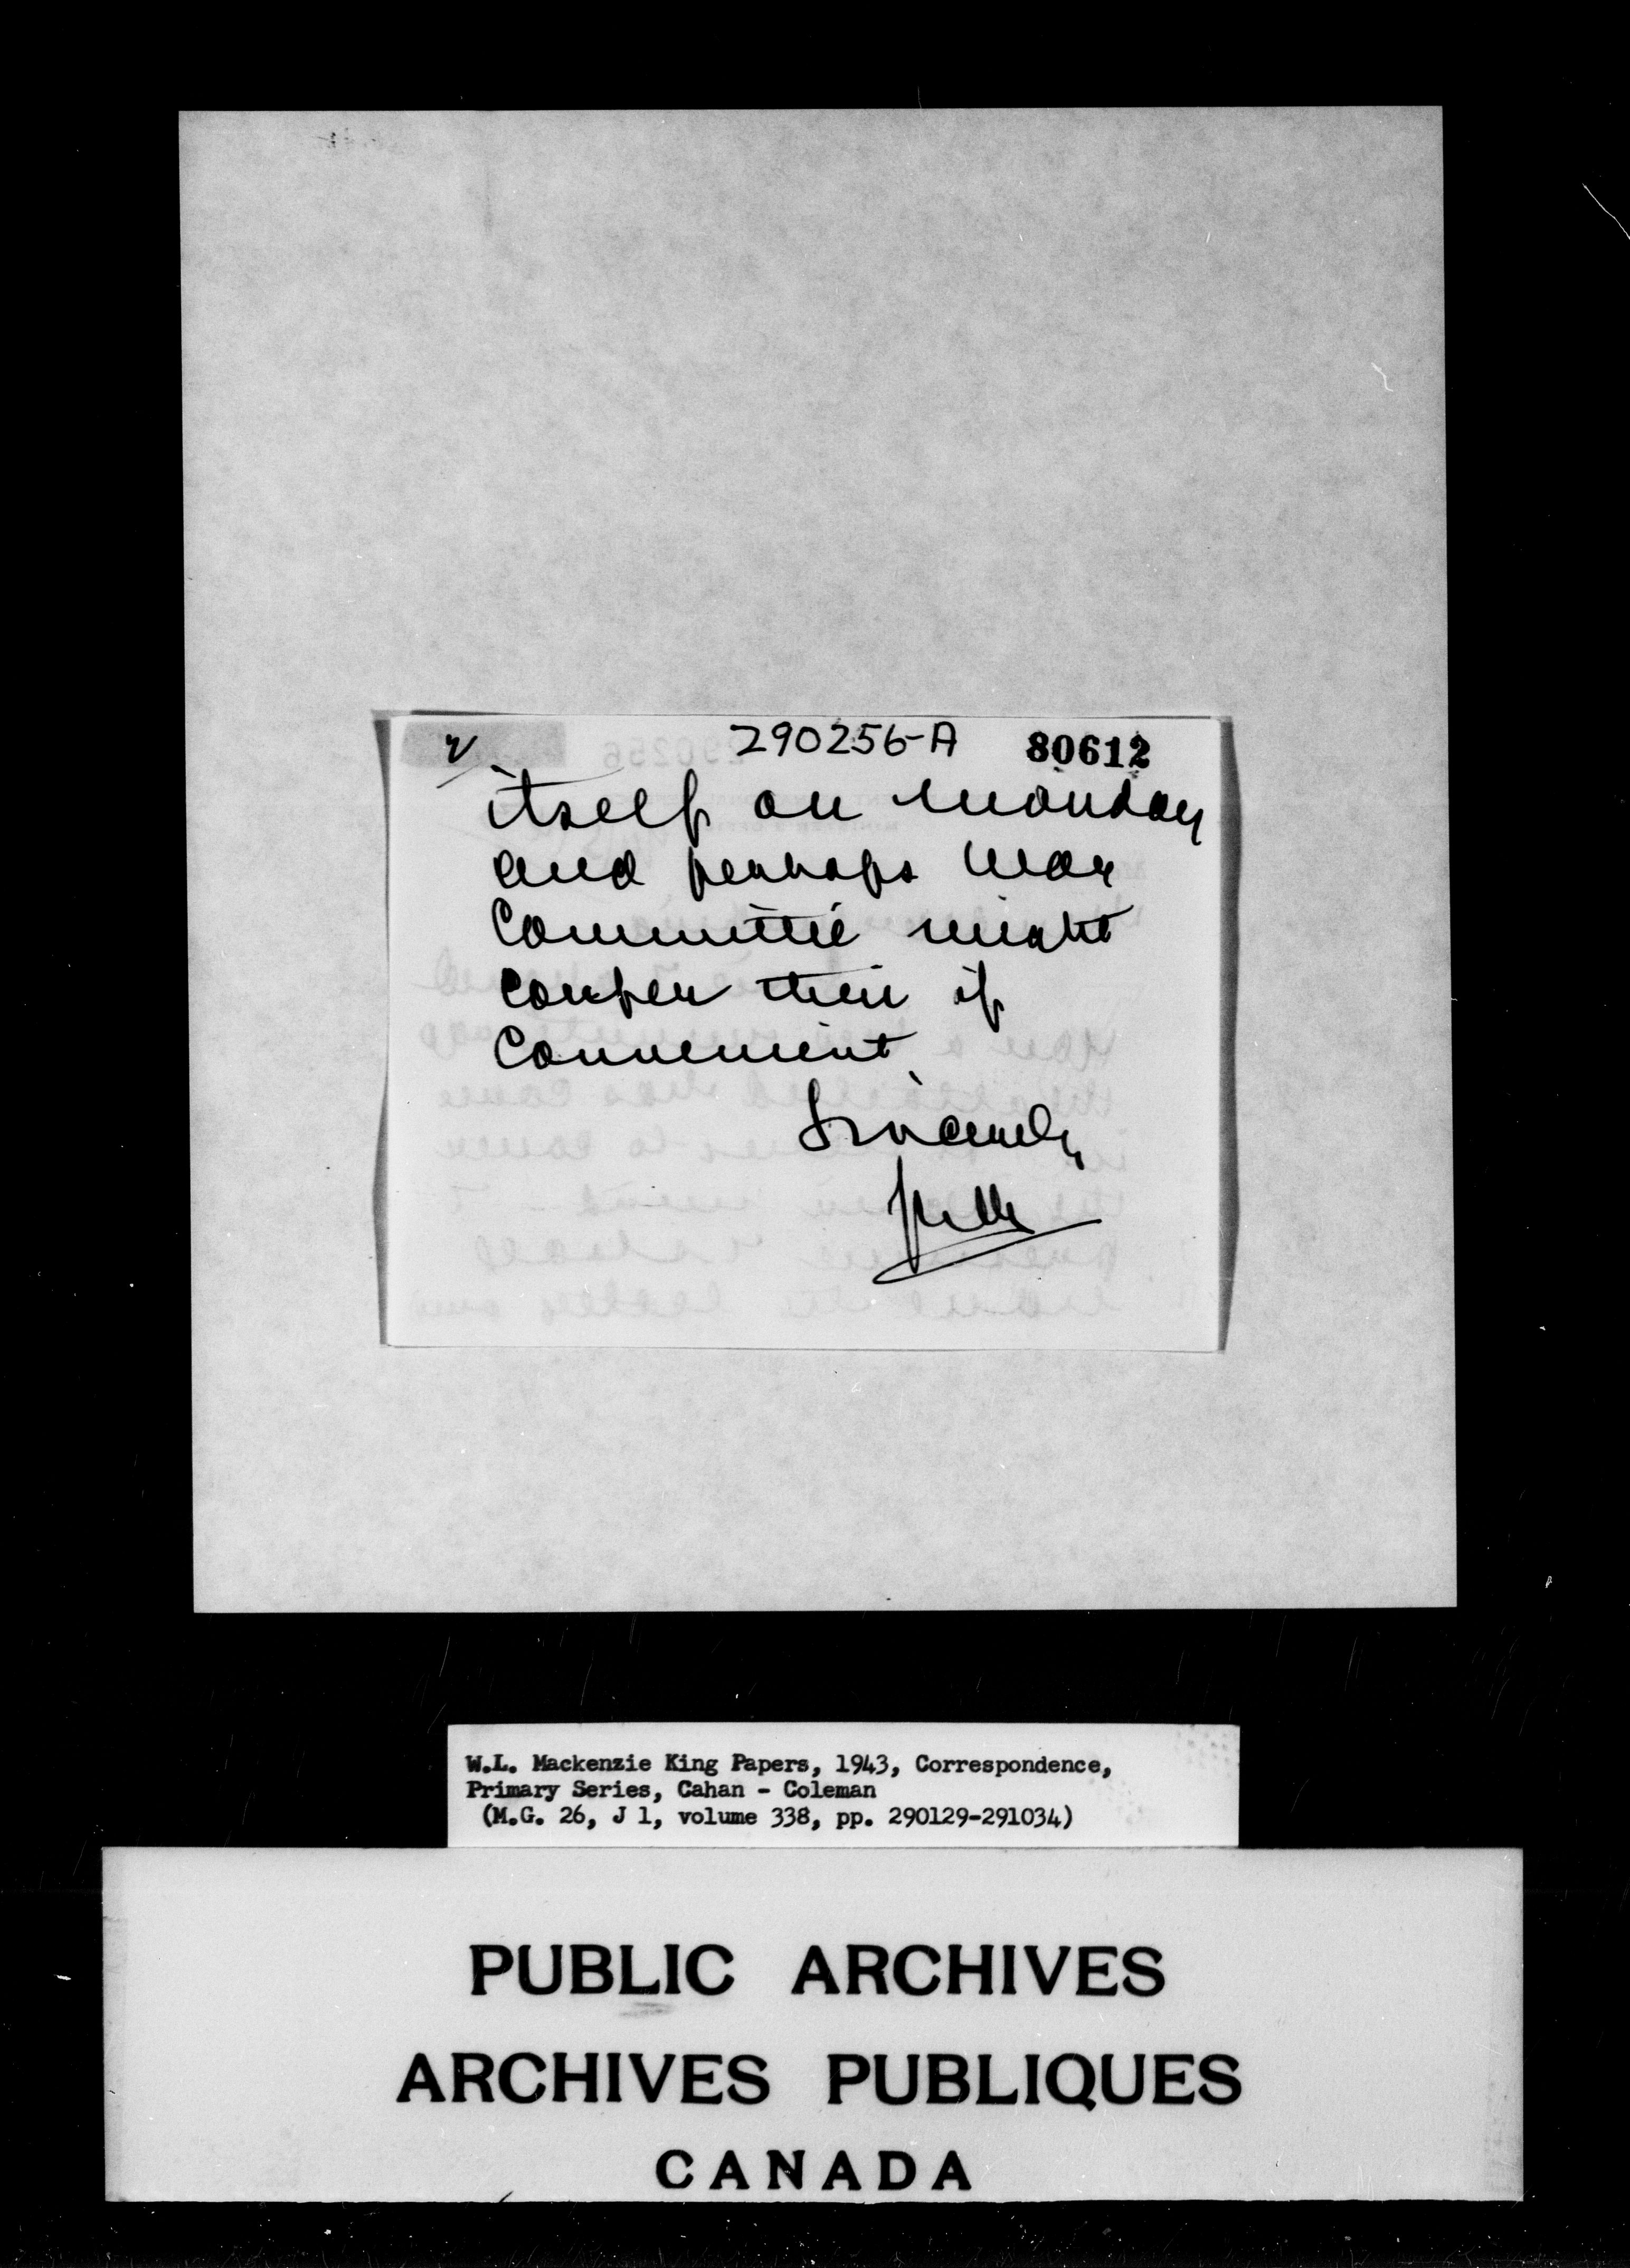 2/
290256-A 80612
itself on Monday
and perhaps War
Committee might
confer then if
convenient.
Sincerely,
W.L. Mackenzie King Papers, 1943, Correspondence,
Primary Series, Cahan - Coleman
(M.G. 26, J 1, volume 338, pp. 290129-291034)
PUBLIC ARCHIVES
ARCHIVES PUBLIQUES
CANADA